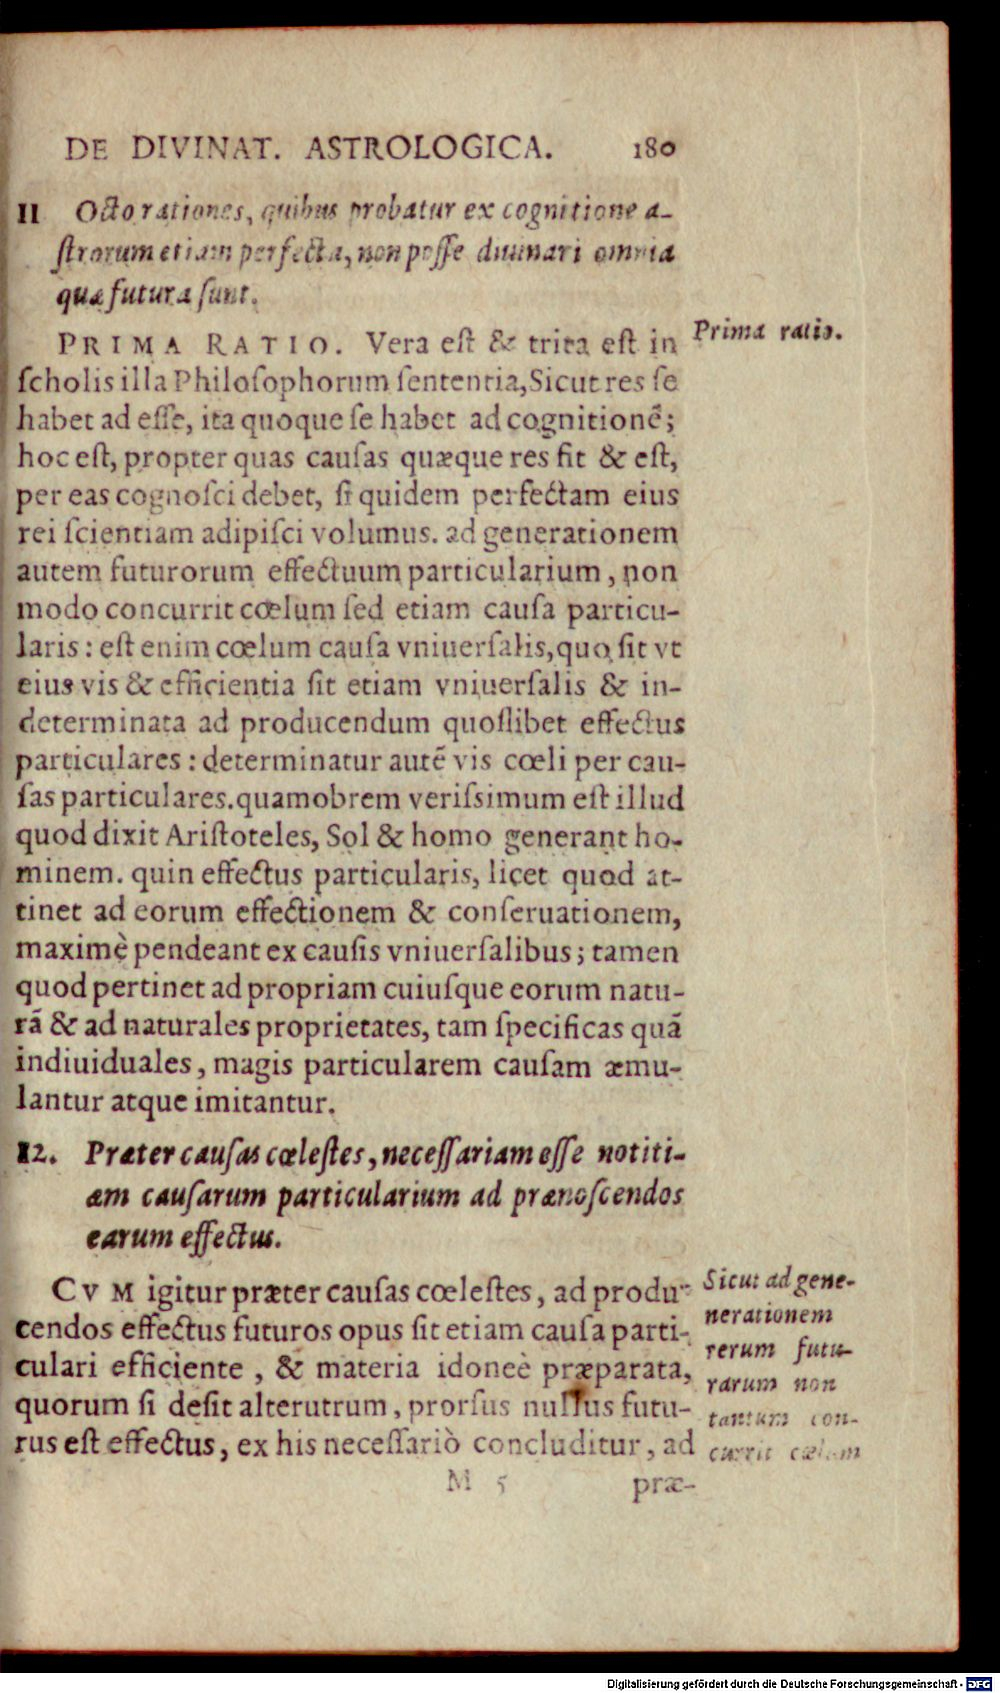 DE DIVINAT. ASTROLOGICA. 180
II Octo rationes, quibus probatur ex cognitione a-
ſtrorum etiam perfecta, non poſſe diuinari omnia
quæ futura ſunt.
PRIMA RATIO. Vera eſt & trita eſt in
Prima ratio.
ſcholis illa Philoſophorum ſententia, Sicut res ſe
habet ad eſſe, ita quoque ſe habet ad cognitionē;
hoc eſt, propter quas cauſas quæque res fit & eſt,
per eas cognoſci debet, ſi quidem perfectam eius
rei ſcientiam adipiſci volumus. ad generationem
autem futurorum effectuum particularium, non
modo concurrit cœlum ſed etiam cauſa particu-
laris: eſt enim cœlum cauſa vniuerſalis, quo fit vt
eius vis & efficientia ſit etiam vniuerſalis & in-
determinata ad producendum quoſlibet effectus
particulares: determinatur autē vis cœli per cau-
ſas particulares. quamobrem veriſſimum eſt illud
quod dixit Ariſtoteles, Sol & homo generant ho-
minem. quin effectus particularis, licet quod at-
tinet ad eorum effectionem & conſeruationem,
maximè pendeant ex cauſis vniuerſalibus; tamen
quod pertinet ad propriam cuiuſque eorum natu-
rā & ad naturales proprietates, tam ſpecificas quā
indiuiduales, magis particularem cauſam æmu-
lantur atque imitantur.
12. Præter cauſas cœleſtes, neceſſariam eſſe notiti-
am cauſarum particularium ad prænoſcendos
earum effectus.
CVM igitur præter cauſas cœleſtes, ad produ-
cendos effectus futuros opus ſit etiam cauſa parti-
culari efficiente, & materia idoneè præparata,
quorum ſi deſit alterutrum, prorſus nullus futu-
rus eſt effectus, ex his neceſſariò concluditur, ad
Sicut ad gene-
nerationem
rerum futu-
rarum non
tantum con-
currit cœlum
M 5 præ-
Digitalisierung gefördert durch die Deutsche Forschungsgemeinschaft - DFG